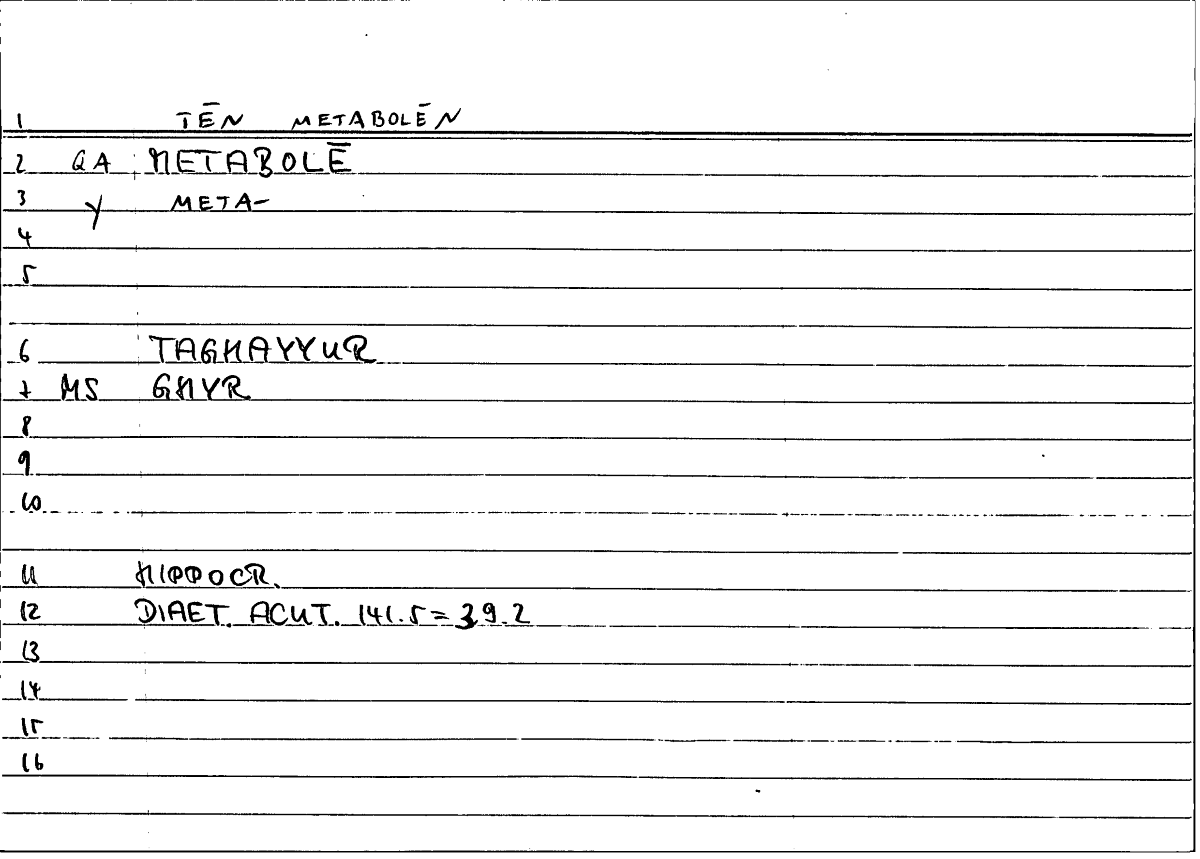 1 TĒN METABOLĒN
2 QA METABOLĒ
3 Y META-
4
5
6 TAGHAYYUR
7 MS GHYR
8
9
10
11 HIPPOCR.
12 DIAET. ACUT. 141.5 = 39.2
13
14
15
16